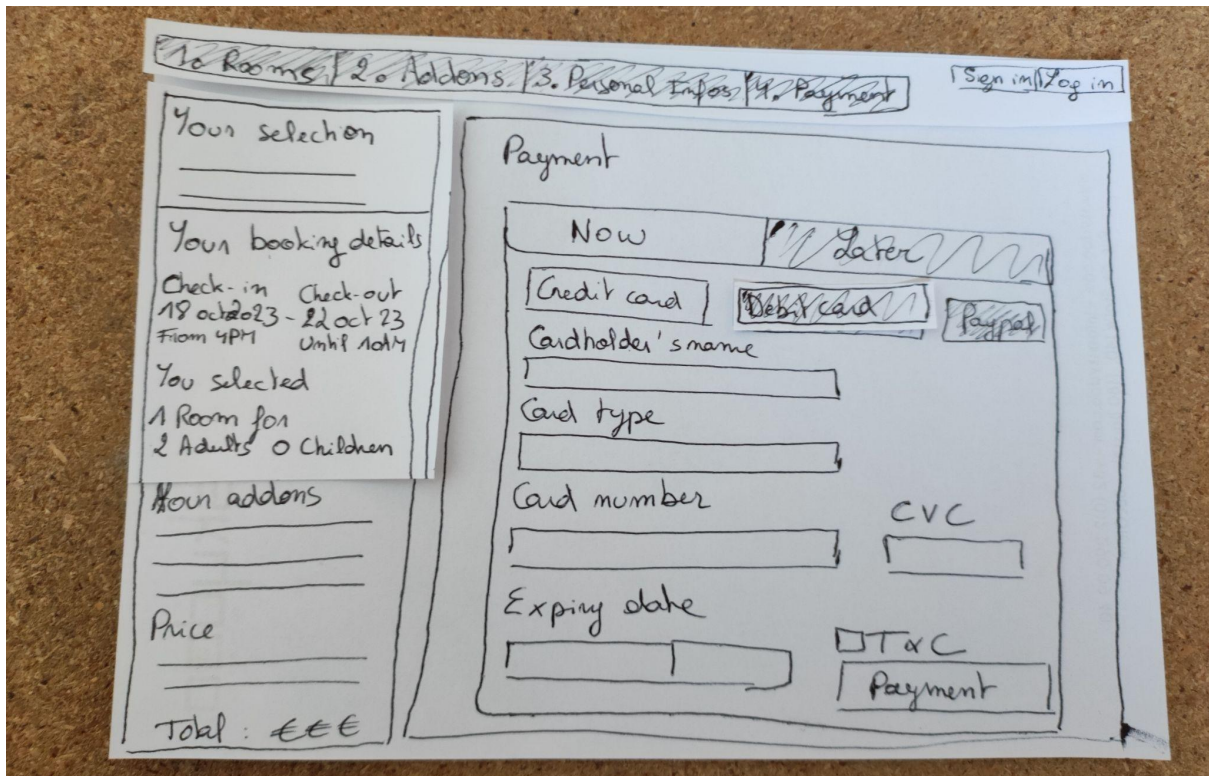 1. Rooms 2. Addons 3. Personal Infos 4. Payment
Sign in Log in
Your selection
Your booking details
Check-in Check-out
18 oct 2023 - 22 oct 23
From 4PM Until 10AM
You selected
1 Room for
2 Adults 0 Children
Your addons
Price
Total : €€€
Payment
Now Later
Credit card Debit card Paypal
Cardholder's name
Card type
Card number
CVC
Expiry date
T&C
Payment